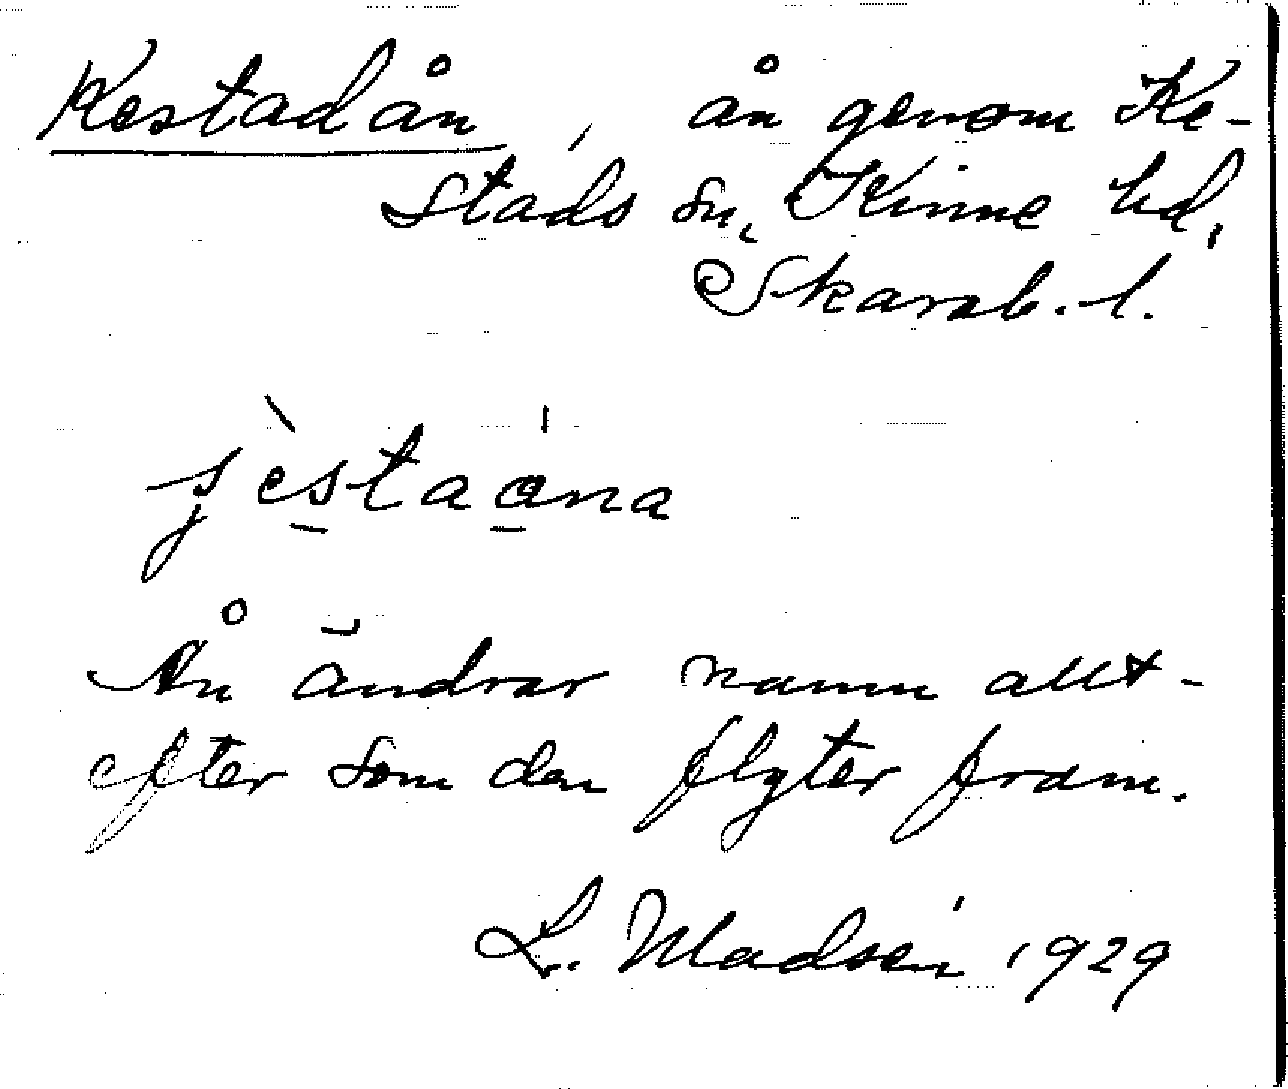 Kestadån, ån genom Ke-
stads sn, Kinne hd,
Skarab. l.
Ån ändrar namn allt-
efter som den flyter fram.
L. Madsén 1929